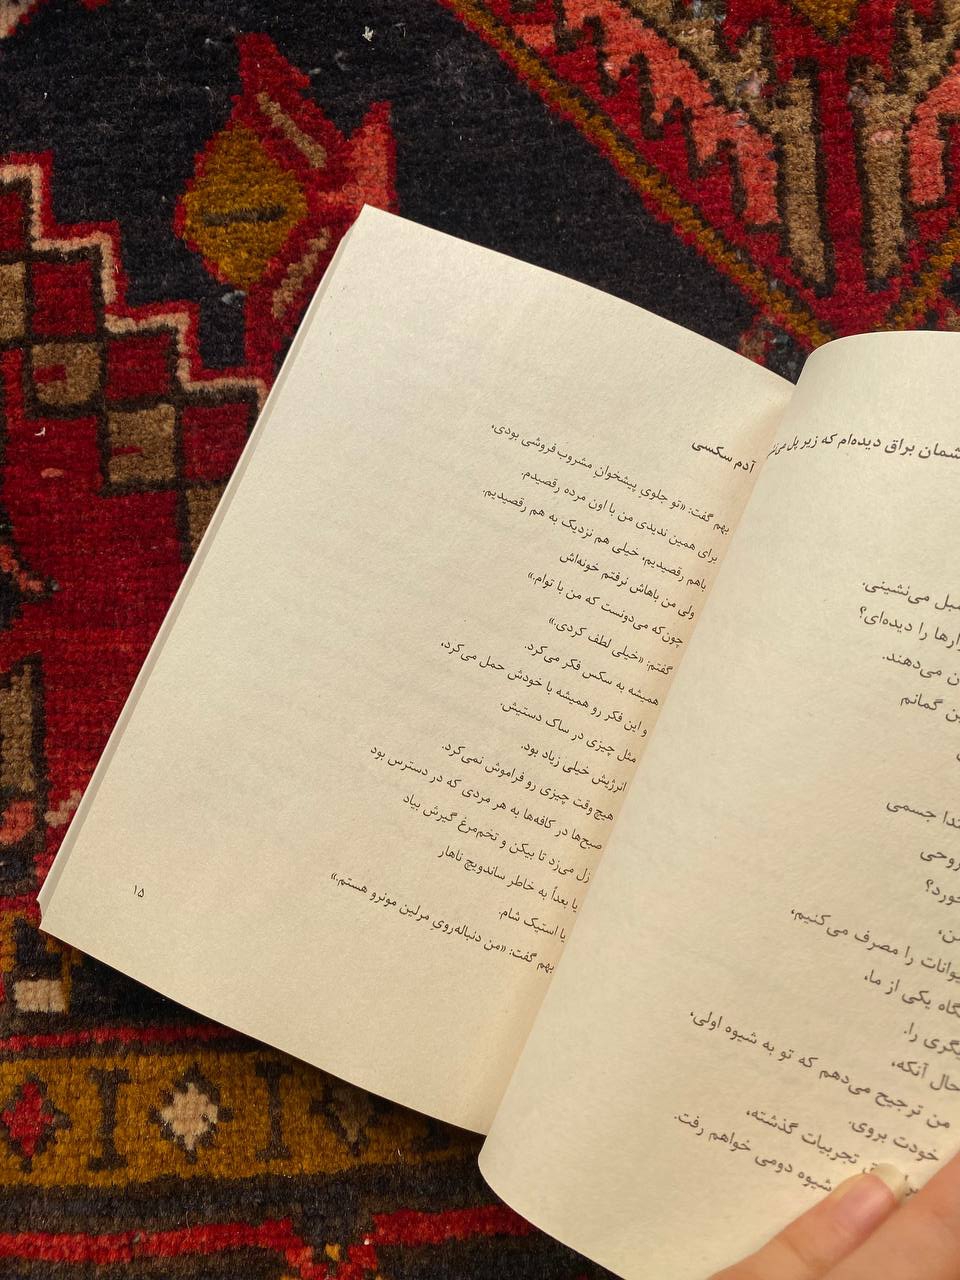 آدم سکسی
بهم گفت: «تو جلویِ پیشخوانِ مشروب‌فروشی بودی،
برای همین ندیدی من با اون مرده رقصیدم.
باهم رقصیدیم، خیلی هم نزدیک به هم رقصیدیم.
ولی من باهاش نرفتم خونه‌اش
چون‌که می‌دونست که من با توام.»
گفتم: «خیلی لطف کردی.»
همیشه به سکس فکر می‌کرد.
و این فکر رو همیشه با خودش حمل می‌کرد،
مثل چیزی در ساک دستیش.
انرژیش خیلی زیاد بود.
هیچ‌وقت چیزی رو فراموش نمی‌کرد.
صبح‌ها در کافه‌ها به هر مردی که در دسترس بود
زل می‌زد تا بیکن و تخم‌مرغ گیرش بیاد
یا بعداً به خاطر ساندویچ ناهار
یا استیک شام.
بهم گفت: «من دنباله‌رویِ مرلین مونرو هستم.»
۱۵
براق دیده‌ام که زیر پل
می‌نشینی.
را دیده‌ای؟
می‌دهند.
گمانم
جسمی
را مصرف می‌کنیم،
یکی از ما،
را.
حال آنکه،
من ترجیح می‌دهم که تو به شیوه اولی،
خودت بروی.
تجربیات گذشته،
شیوه دومی خواهم رفت.